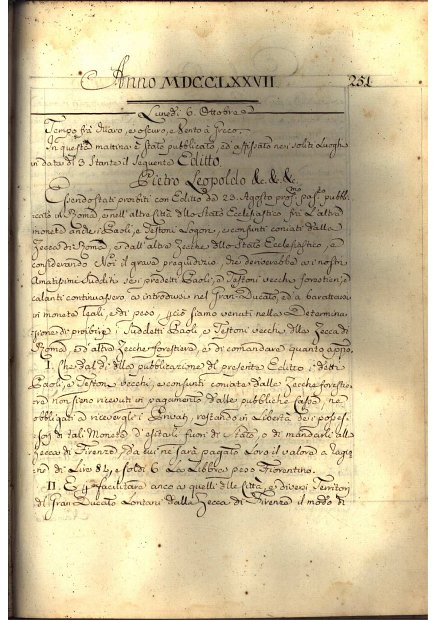 Anno MDCCLXXVII 251
Lunedì 6. Ottobre
Tempo frà chiaro, e oscuro, e Vento à Greco.
In questa mattina è stato pubblicato, ed affissato nei soliti Luoghi
in data dì 3 Stante il seguente Editto.
Pietro Leopoldo &c. &c. &c.
Essendo stati proibiti con Editto de 23. Agosto pros.mo pas.to pubbli:
cato in Roma, e nell'altre Città dello Stato Ecclesiastico frà l'altre
monete anche i Paoli, e Testoni Logori, e consunti coniati dalla
Zecca di Roma, e dall'altre Zecche dello Stato Ecclesiastico, e
considerando Noi il grave pregiudizio, che deriverebbe a i nostri
Amatissimi Sudditi se i predetti Paoli, e Testoni vecchi forestieri, e
calanti continuassero a introdursi nel Gran-Ducato, ed a barattarsi
in monete Reali, e di peso perciò siamo venuti nella Determina:
zione di proibire i Suddetti Paoli e Testoni vecchi della Zecca di
Roma, e d'altre Zecche forestiere, e di comandare quanto app.o
I. Che dal dì della pubblicazione del presente Editto i detti
Paoli, e Testoni vecchi, e consunti coniati dalle Zecche forestie:
re non siano ricevuti in pagamento dalle pubbliche Casse, ne
obbligati a riceverli i Privati, restando in Libertà de i posses:
sori di tali Monete d'esitarli fuori di Stato, o di mandarli alla
Zecca di Firenze, da cui ne sarà pagato Loro il valore a ragio:
ne di Lire 84, e soldi 6 La Libbra peso Fiorentino.
II. E per facilitare anco a quelli delle Città, e diversi Territorj
del Gran-Ducato Lontani dalla Zecca di Firenze il modo di